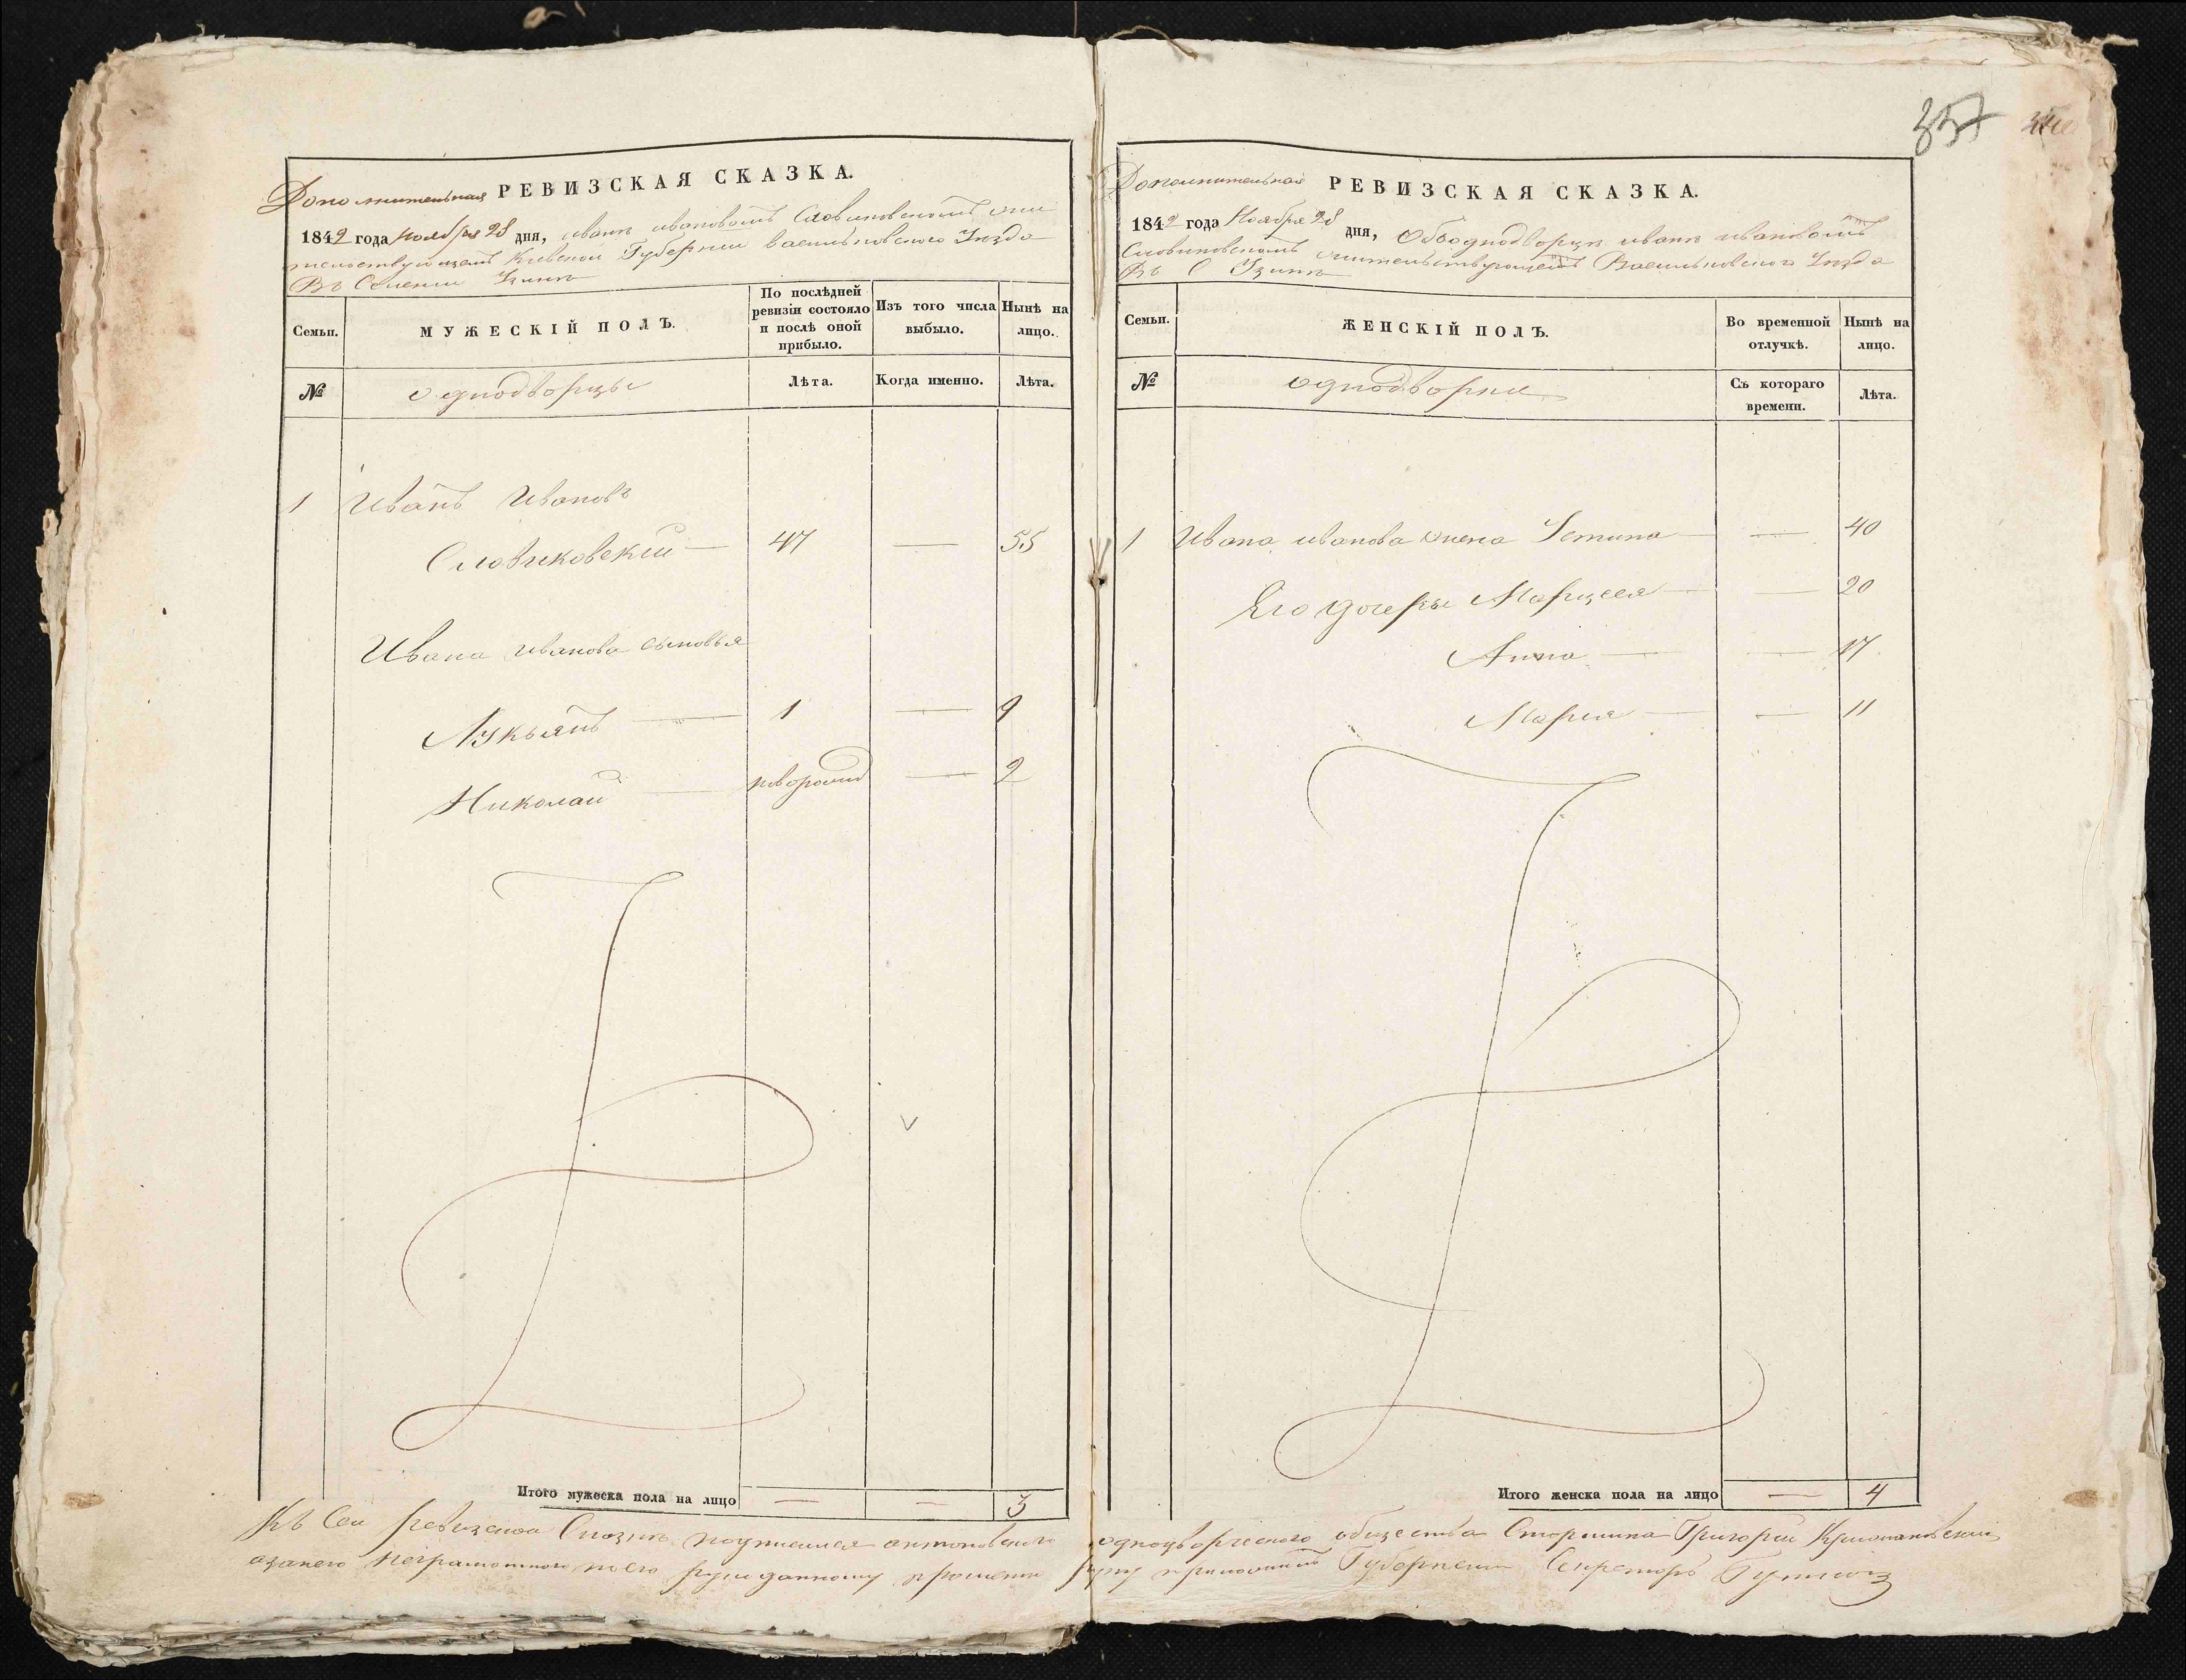 357
Дополнительная РЕВИЗСКАЯ СКАЗКА.
1842 года Ноября 28 дня, иванъ ивановымъ Словиковскимъ жи
тельствующемъ Киевской Губернии васильковского Уезда
Въ Селении Узинъ
Семьи.
МУЖЕСКІЙ ПОЛЪ.
По послѣдней ревизіи состояло и послѣ оной прибыло.
Изъ того числа выбыло.
Нынѣ на лицо.
№
однодворцы
Лѣта.
Когда именно.
Лѣта.
1 Иванъ Ивановъ
Словиковский — 47 — 55
Ивана иванова сыновья
Лукьянъ — 1 — 9
Николай — новорожд — 2
Итого мужеска пола на лицо — — 3
Дополнительная РЕВИЗСКАЯ СКАЗКА.
1842 года Ноября 28 дня, Обводнодворцѣ иванъ ивановымъ
Словиковскомъ жительствующемъ Васильковского Уезда
Въ С Узинѣ
Семьи.
ЖЕНСКІЙ ПОЛЪ.
Во временной отлучкѣ.
Нынѣ на лицо.
№
однодворки
Съ котораго времени.
Лѣта.
1 Ивана иванова жена Устина — — 40
Его дочеры Марцеля — — 20
Анна — — 17
Мария — — 11
Итого женска пола на лицо — 4
Къ Сей ревизской Сказкѣ подписался антоновского однодворческого общества Старшина Григорий
неграмотного по его данному прошению руку приложилъ Губернский Секретарь